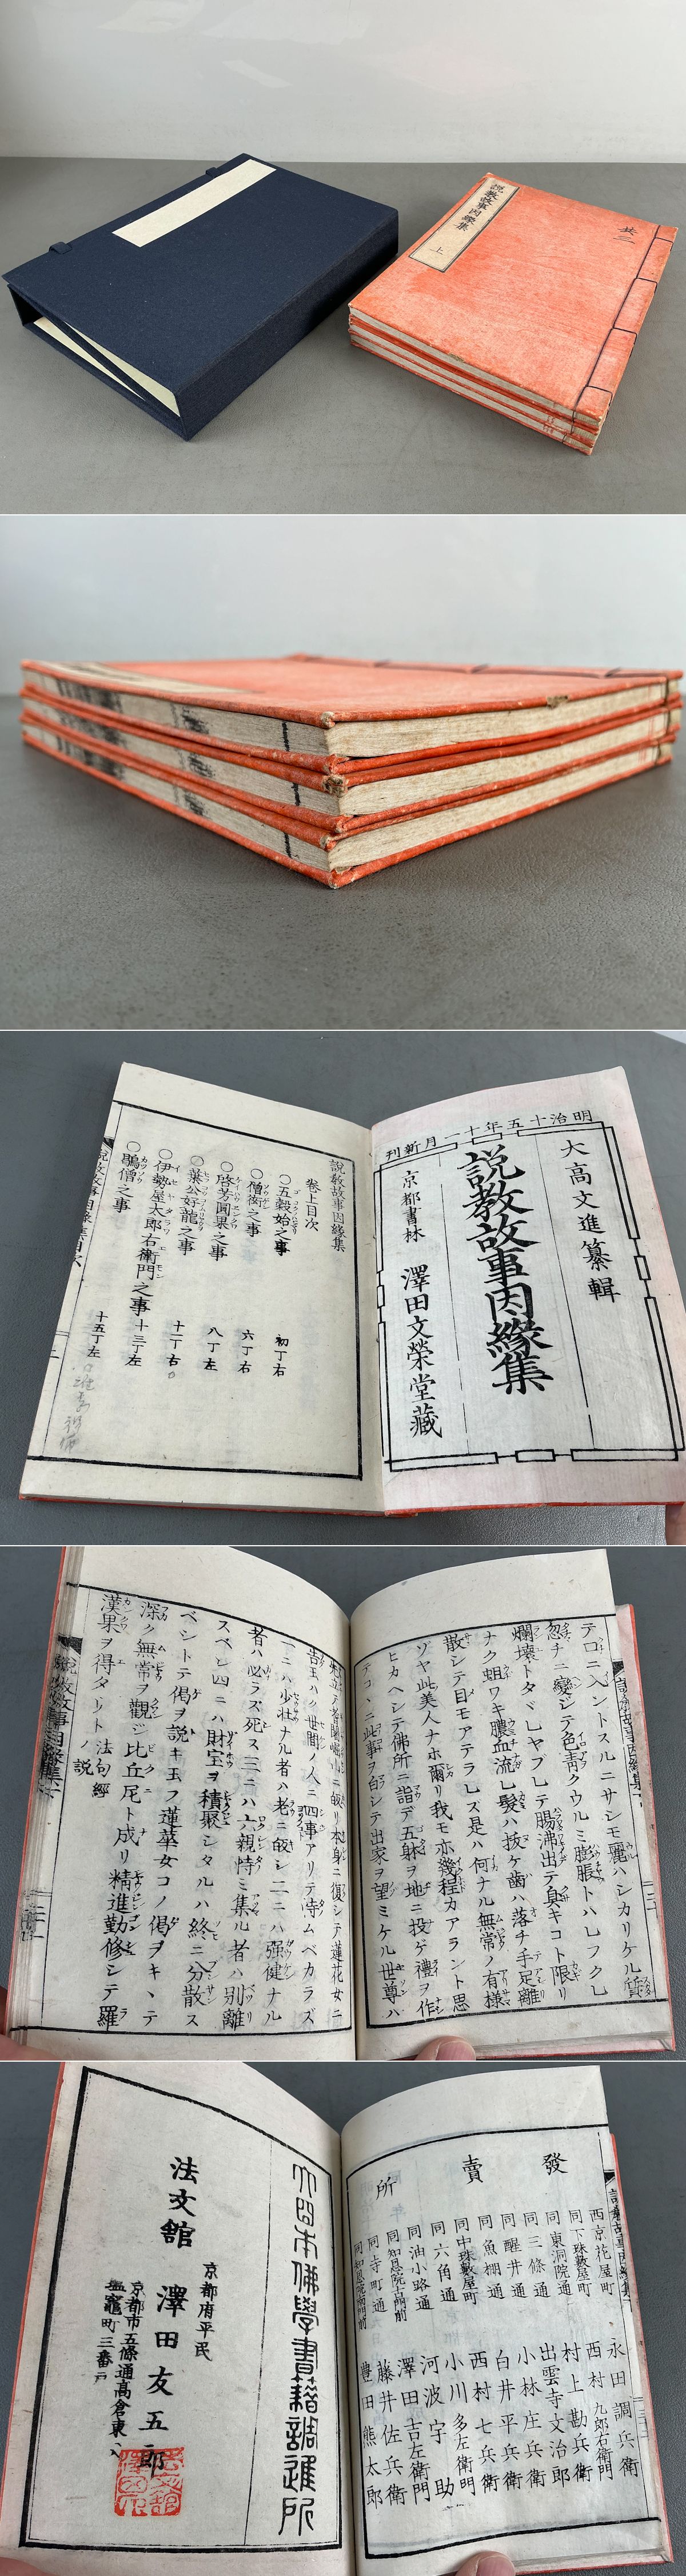 説教故事因縁集 上
明治十五年十一月新刊
大高文進纂輯
説教故事因縁集
京都書林 澤田文榮堂藏
説教故事因縁集
卷上目次
○五穀始之事 初丁右
○僧伽之事 六丁右
○啓芳圓果之事 八丁左
○葉公好龍之事 十一丁右
○伊勢屋太郎右衛門之事 十三丁左
○鵰僧之事 十五丁左
説教故事因縁集目次
テロニ入ントスルニサシモ麗ハシカリケル質
忽チニ變シテ色青クウルミ膨脹トハレフクレ
爛壞トタヾレヤブレテ膓沸出テ臭キコト限リ
ナク蛆ワキ膿血流レ髮ハ抜ケ歯ハ落チ手足離
散シテ目モアテラレズ是ハ何ナル無常ノ有様
ゾヤ此美人ナホ爾リ我モ亦幾程カアラント思
ヒカヘシテ佛所ニ詣デ五躰ヲ地ニ投ゲ禮ヲ作
テコヽニ此事ヲ白シテ出家ヲ望ミケル世尊ハ
告玉ハク世間ノ人ニ四事アリテ恃ムベカラズ
一ニハ少壮ナル者ハ老ニ皈シ二ニハ強健ナル
者ハ必ラズ死ス三ニハ六親恃ミ集ル者ハ別離
スベシ四ニハ財宝ヲ積聚シタルハ終ニ分散ス
ベシトテ偈ヲ説キ玉フ蓮華女コノ偈ヲキヽテ
深ク無常ヲ觀ジ比丘尼ト成リ精進勤修シテ羅
漢果ヲ得タリト 法句經ノ説
發賣所
西京花屋町 永田調兵衛
同下珠數屋町 西村九郎右衛門
同東洞院通 村上勘兵衛
同三條通 出雲寺文治郎
同醒井通 小林庄兵衛
同魚棚通 白井平兵衛
同中珠數屋町 西村七兵衛
同六角通 小川多左衛門
同油小路通 河波宇助
同知恩院古門前 澤田吉左衛門
同寺町通 藤井佐兵衛
同知恩院古門前 豊田熊太郎
大日本佛學書籍調進所
京都府平民
法文館 澤田友五郎
京都市五條通高倉東入
塩竈町三番戸